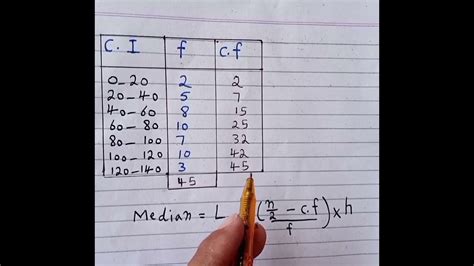 C.I f c.f
0-20 2 2
20-40 5 7
40-60 8 15
60-80 10 25
80-100 7 32
100-120 10 42
120-140 3 45
45
Median = L (n/2 - c.f / f) x h